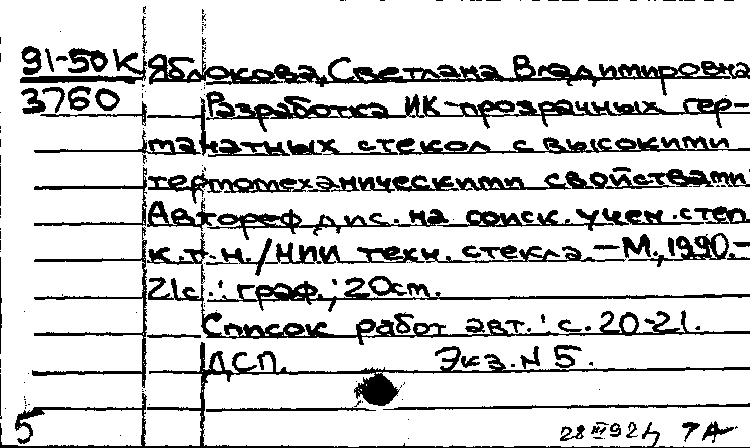 91-50К Яблокова, Светлана Владимировна
3760 Разработка ИК-прозрачных гер-
манатных стекол с высокими
термомеханическими свойствами:
Автореф дис. на соиск. учен. степ
к.т.н./НИИ техн. стекла.—М., 1990.—
21с.: граф.; 20ст.
Список работ авт.: с. 20-21.
ДСП. Экз. N 5.
5 28 III 92